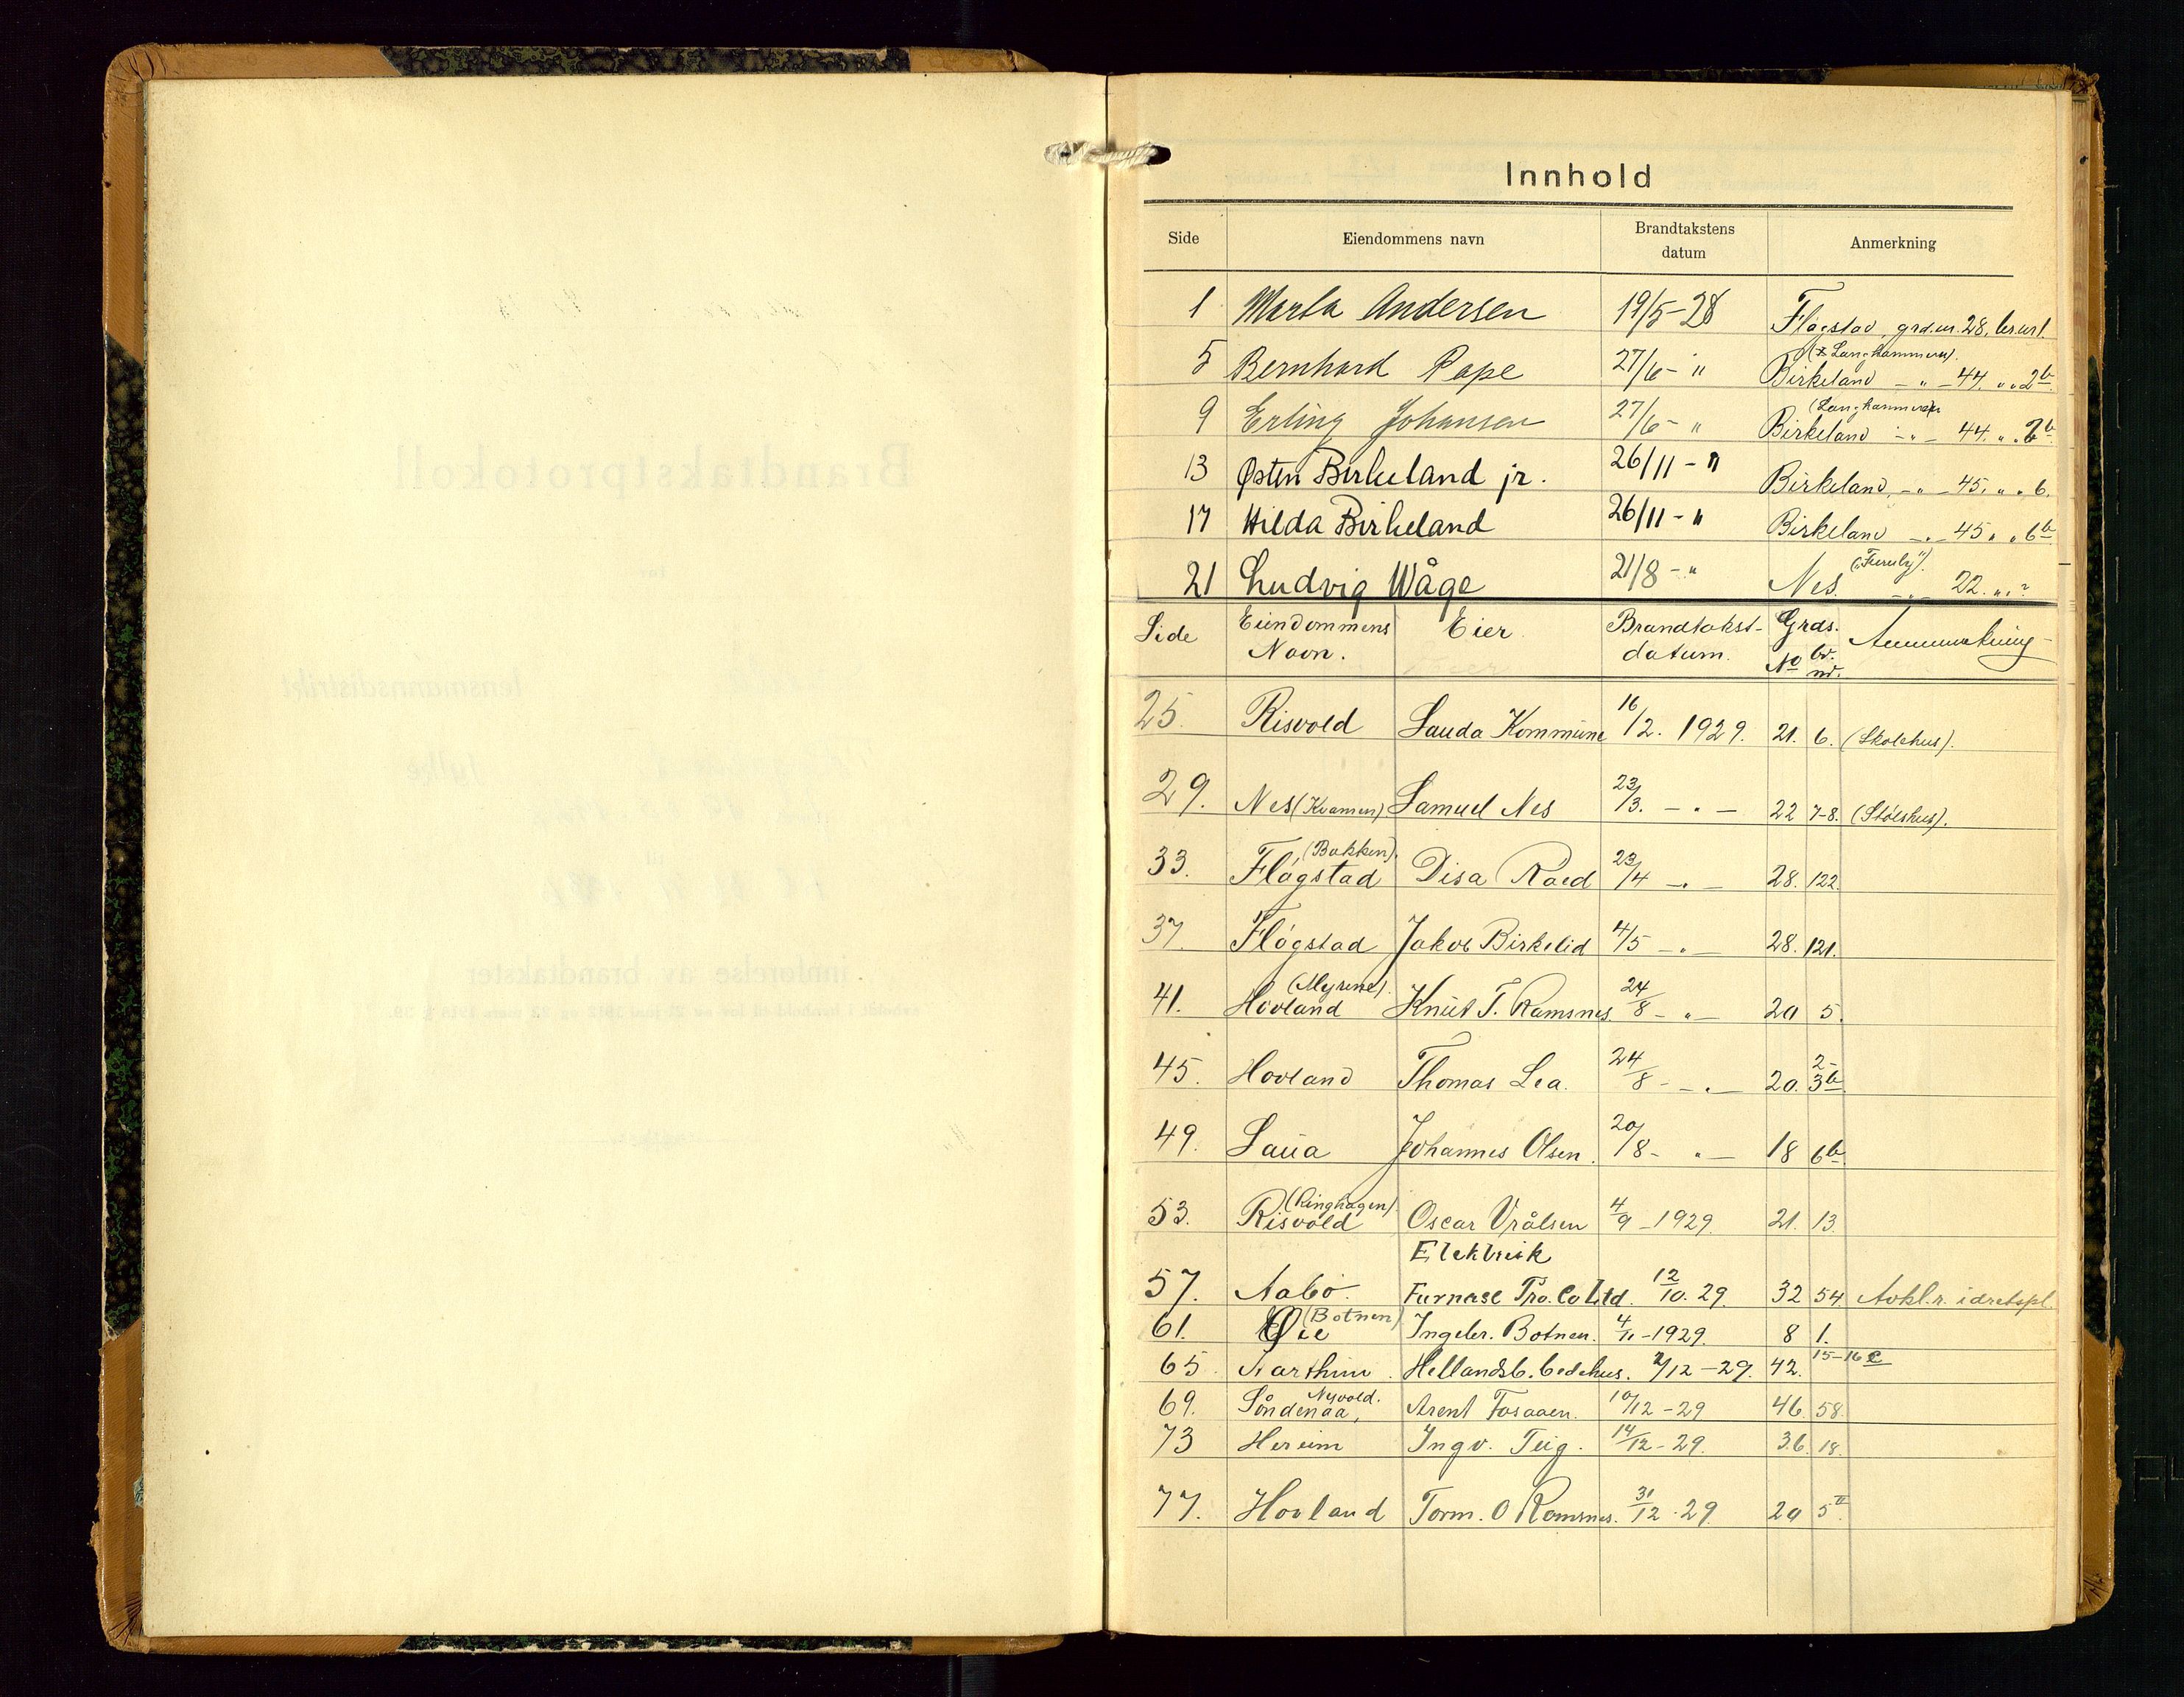 Innhold
Side Eiendommens navn Brandtakstens datum Anmerkning
1 Marta Andersen 19/5-28 Fløgstad grd.nr. 28, br.nr 1.
5 Bernhard Pape 27/6- " Birkeland (Langhammeren). - " - 44. " " 2b
9 Erling Johansen 27/6- " Birkeland (Langhammeren - " - 44. " . 2b
13 Østen Birkeland jr. 26/11 - " Birkeland, - " - 45. " " 6.
17 Hilda Birkeland 26/11 - " Birkeland - " - 45 " " 6b
21 Ludvig Wåge 21/8 - " Nes. ("Furuly"). - " - 22. " " ?
Side Eiendommens Navn. Eier Brandtakst-datum. Grds. No br. nr. Anmerkning
25. Risvold Sauda Kommune 16/2. 1929. 21. 6. (Skolehus).
29. Nes (Kvamen) Samuel Nes 23/3. - " - 22 7-8. (Stølshus).
33. Fløgstad (Bakken). Disa Raed 23/4 - " - 28. 122.
37. Fløgstad Jakob Birkelid 4/5 - " - 28. 121.
41. Hovland (Myrene). Knut T. Ramsnes. 24/8 - " - 20 5.
45. Hovland Thomas Lea. 24/8 - - " - 20. 2-3b
49. Saua Johannes Olsen. 20/8 - " - 18 6b
53. Risvold (Ringhagen). Oscar Vrålsen 4/9 - 1929. 21. 13.
Elektrisk
57. Aabø. Furnase Pro. Co Ltd. 12/10. 29. 32 54. Avkl.r. idretspl.
61. Øie (Botnen) Ingebr. Botnen. 4/11 - 1929. 8 1.
65. Hellandsb. bedehus. 2/12 - 29. 42. 15-16 c
69. Søndenaa, Nyvold. Arent Fosaaen. 10/12 - 29 46. 58.
73 Hereim Ingv. Teig. 14/12 - 29. 36. 18.
77. Hovland Torm. O Ramsnes. 31/12 . 29. 20 5 II